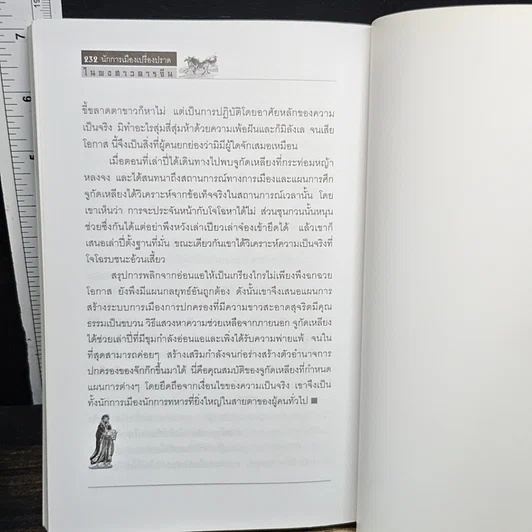 232 นักการเมืองเปรื่องปราด
ในพงศาวดารจีน
ขี้ขลาดตาขาวก็หาไม่ แต่เป็นการปฏิบัติโดยอาศัยหลักของความ
เป็นจริง มิทำอะไรสุ่มสี่สุ่มห้าด้วยความเพ้อฝันและก็มิลังเล จนเสีย
โอกาส นี้จึงเป็นสิ่งที่ผู้คนยกย่องว่ามิมีผู้ใดจักเสมอเหมือน
เมื่อตอนที่เล่าปี่ได้เดินทางไปพบจูกัดเหลียงที่กระท่อมหญ้า
หลงจง และได้สนทนาถึงสถานการณ์ทางการเมืองและแผนการศึก
จูกัดเหลียงได้วิเคราะห์จากข้อเท็จจริงในสถานการณ์เวลานั้น โดย
เขาเห็นว่า การจะประจันหน้ากับโจโฉหาได้ไม่ ส่วนซุนกวนนั้นหนุน
ช่วยซึ่งกันได้แต่อย่าพึงหวังเล่าเปียวเล่าจ๋องเข้ายึดได้ แล้วเขาก็
เสนอเล่าปี่ตั้งฐานที่มั่น ขณะเดียวกันเขาได้วิเคราะห์ความเป็นจริงที่
โจโฉรบชนะอ้วนเสี้ยว
สรุปการพลิกจากอ่อนแอให้เป็นเกรียงไกรไม่เพียงพึงฉกฉวย
โอกาส ยังพึงมีแผนกลยุทธ์อันถูกต้อง ดังนั้นเขาจึงเสนอแผนการ
สร้างระบบการเมืองการปกครองที่มีความขาวสะอาดสุจริตมีคุณ
ธรรมเป็นขบวน วิธีแสวงหาความช่วยเหลือจากภายนอก จูกัดเหลียง
ได้ช่วยเล่าปี่ที่มีขุมกำลังอ่อนแอและเพิ่งได้รับความพ่ายแพ้ จนใน
ที่สุดสามารถค่อยๆ สร้างเสริมกำลังจนก่อร่างสร้างตัวอำนาจการ
ปกครองของจ๊กก๊กขึ้นมาได้ นี่คือคุณสมบัติของจูกัดเหลียงที่กำหนด
แผนการต่างๆ โดยยึดถือจากเงื่อนไขของความเป็นจริง เขาจึงเป็น
ทั้งนักการเมืองนักการทหารที่ยิ่งใหญ่ในสายตาของผู้คนทั่วไป ■